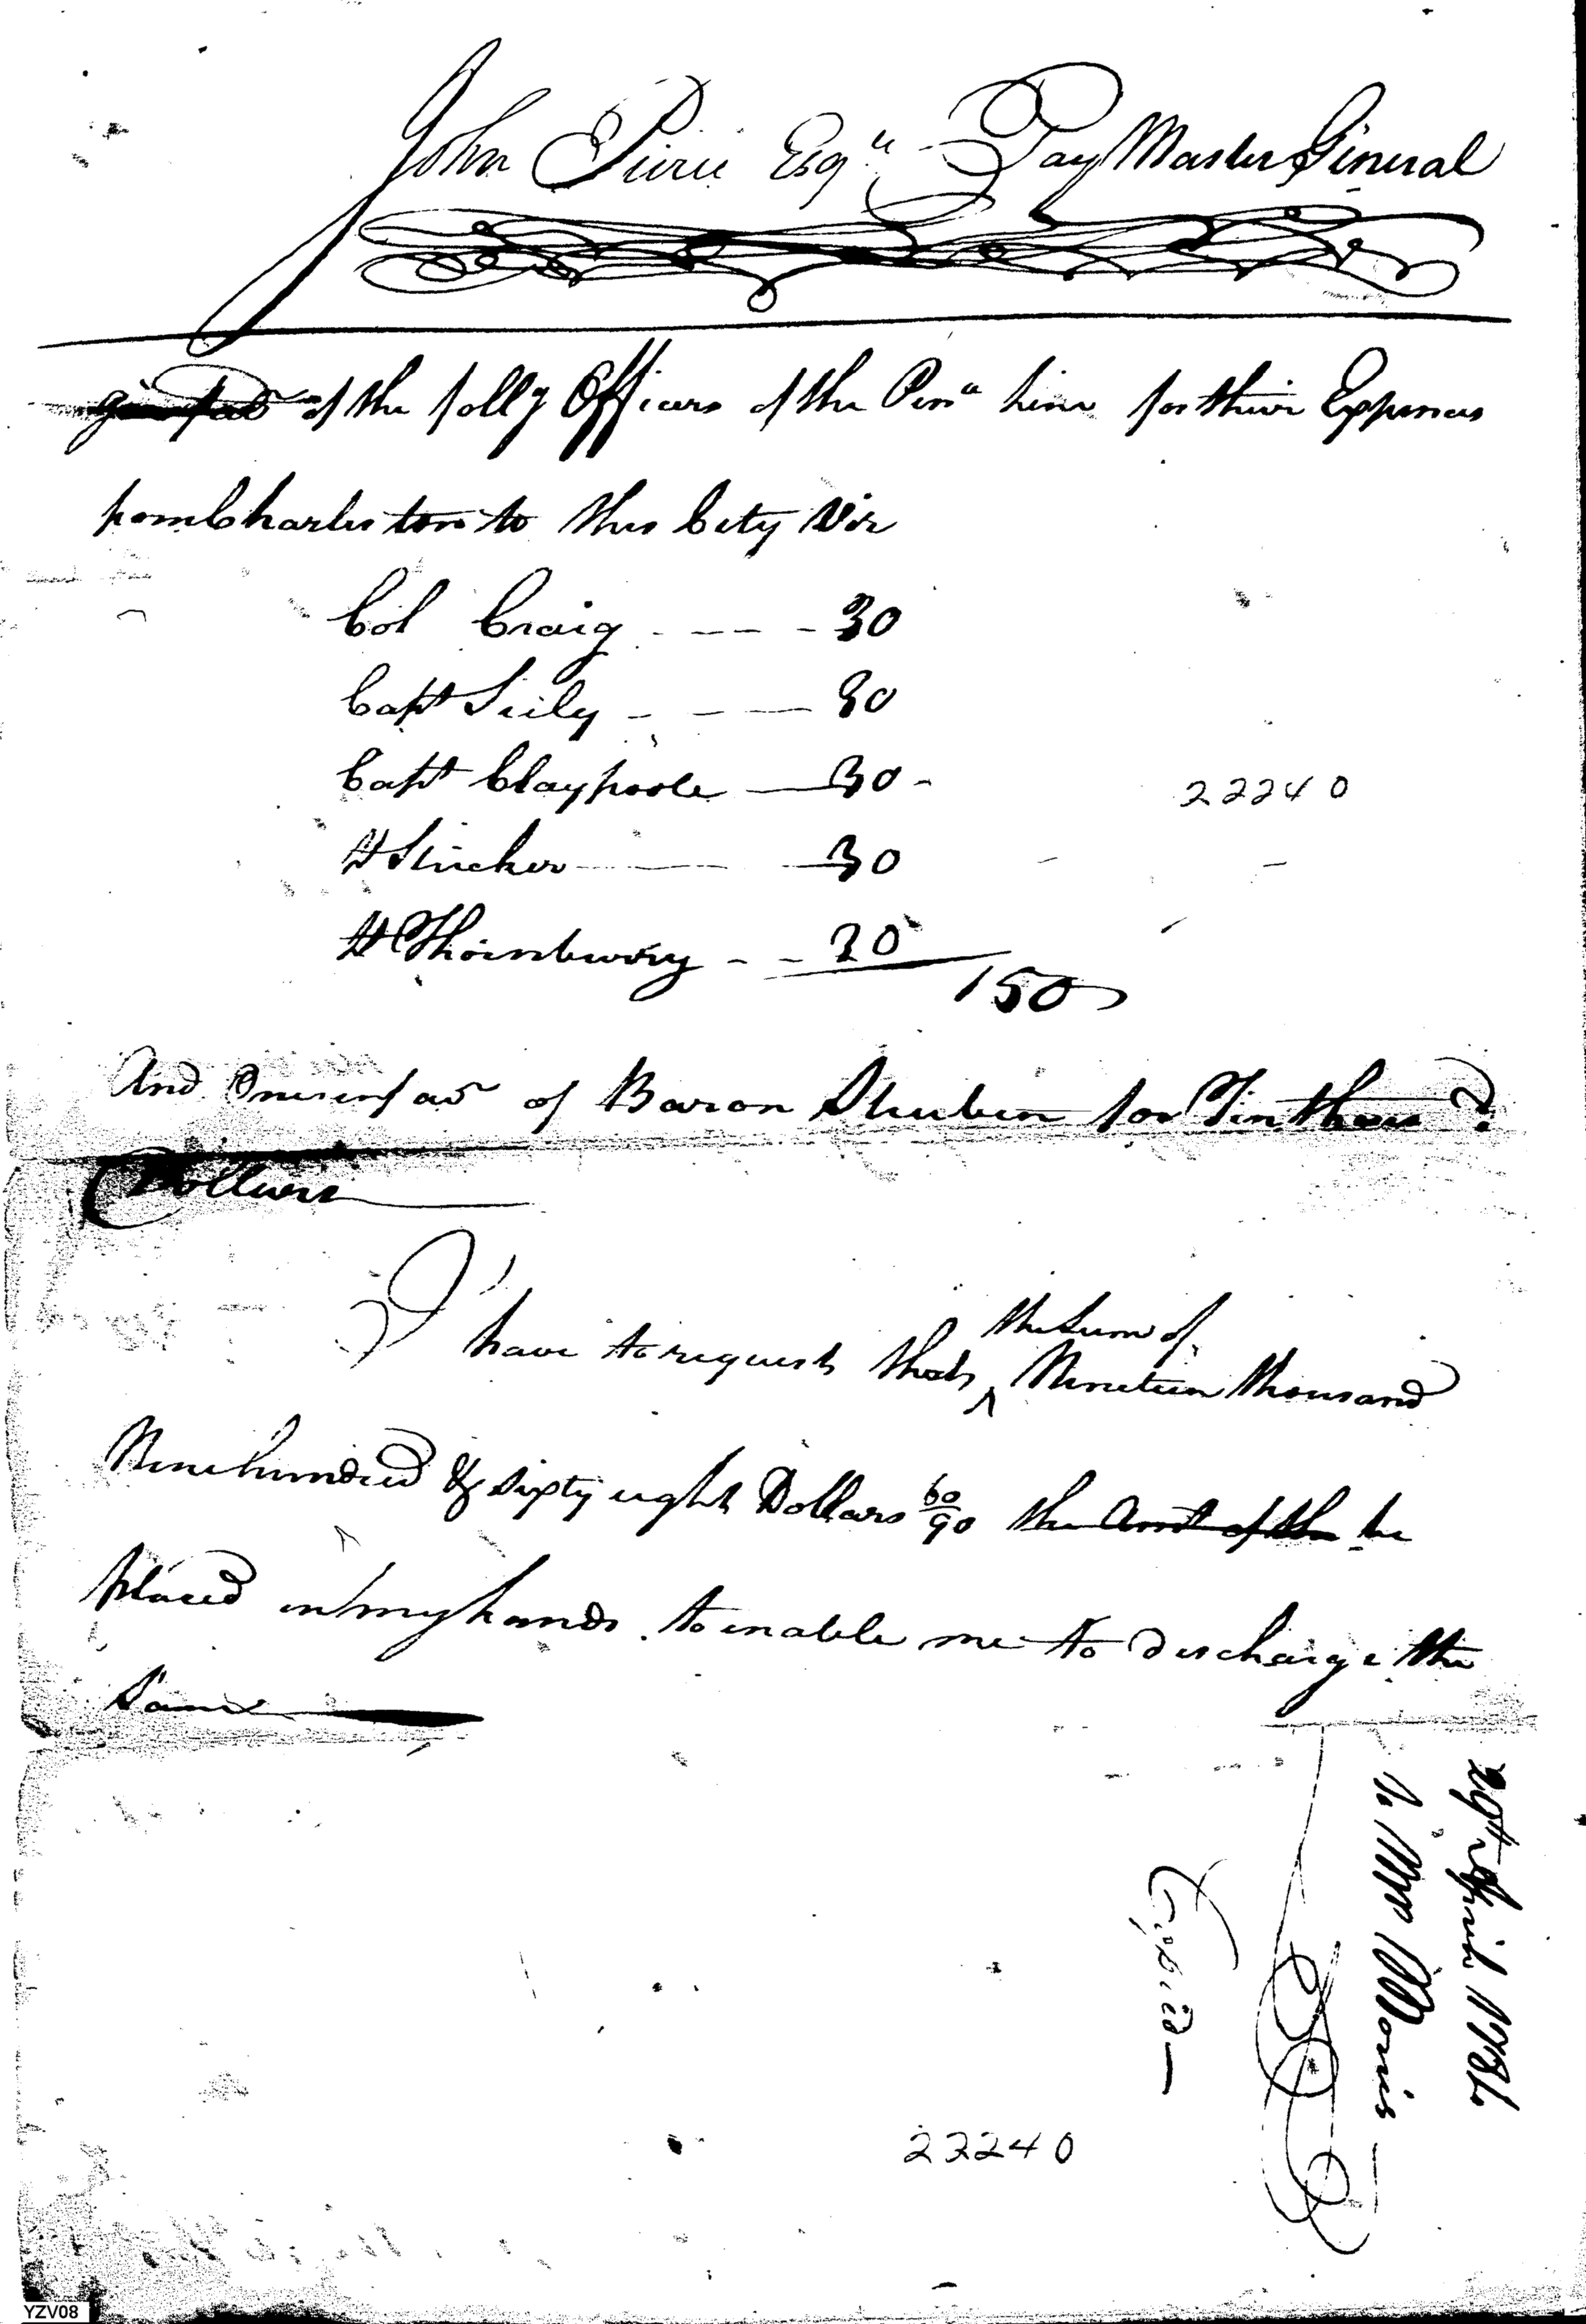 John Pierce Esqr Pay Master General
of the follg Officers of the Penna Line for their Expences
from Charles ton to this City Viz
Col Craig - - - - 30
Capt Seely - - - 30
Capt Claypoole - 30 -
22240
Lt Stricker - 30
Lt Thornbury - - 30
150
And One in favr of Baron Steuben for Ten thousd
Dollars
the Sum of
I have to request that ^ Nineteen thousand
Nine hundred & sixty eight Dollars 60/90 the Amt of the be
placed in my hands to enable me to discharge the
Same
29th April 1784
to Mr Morris
Copied
22240
YZV08